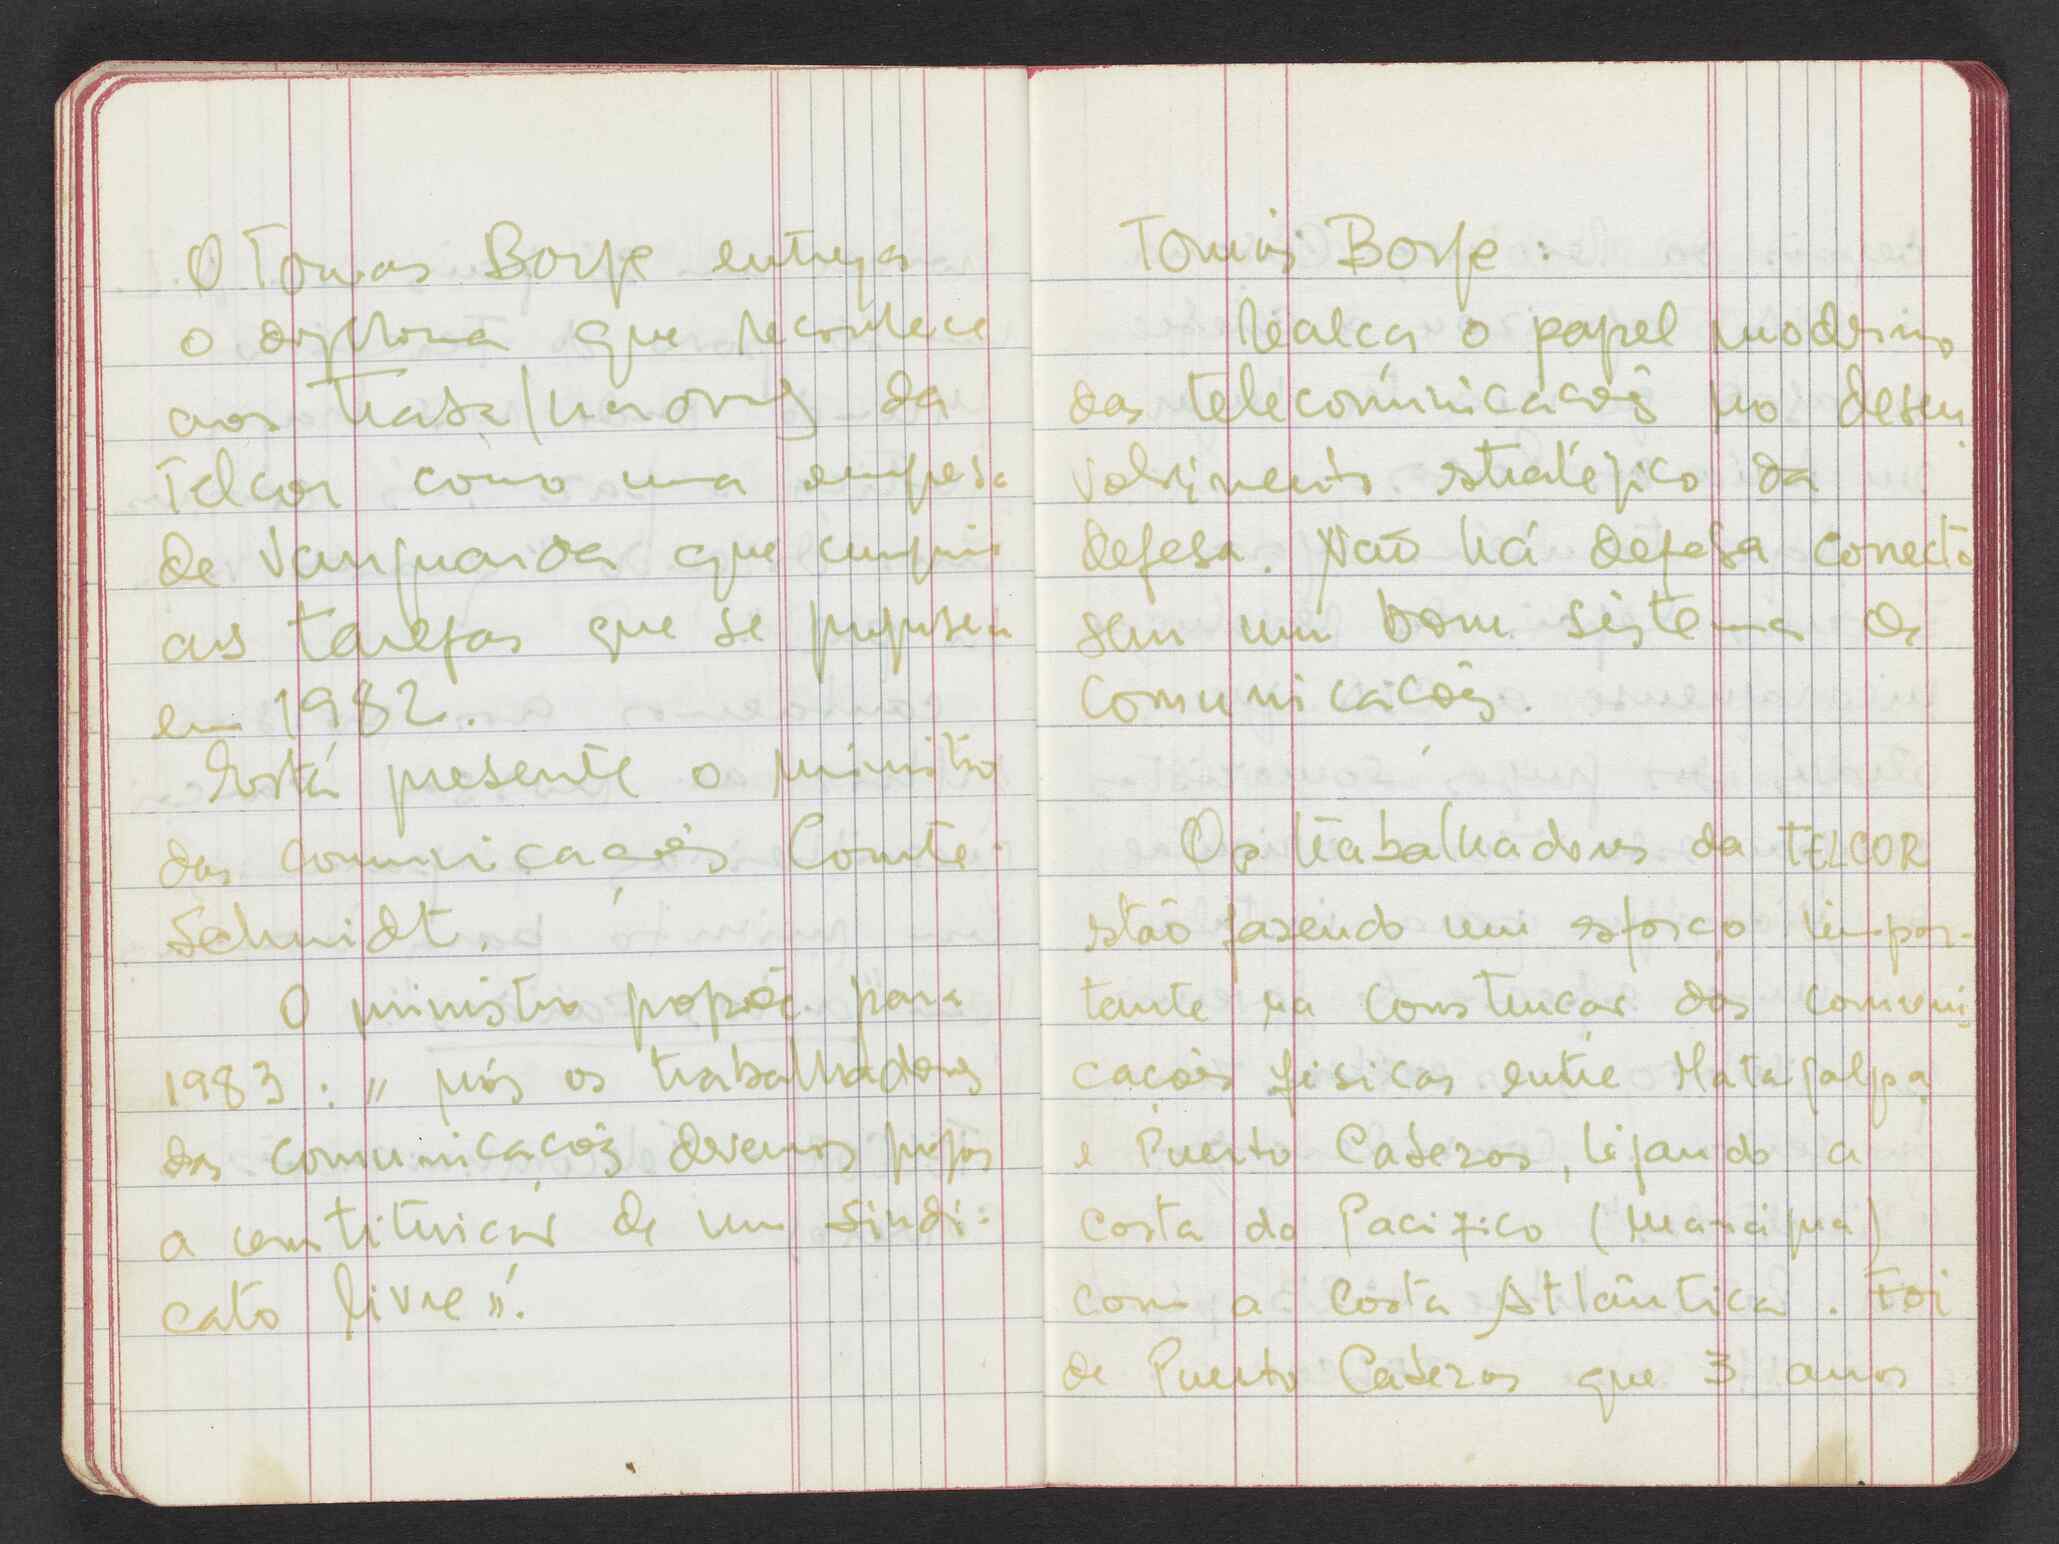 O Tomas Borge entrega
o diploma que reconhece
aos trabalhadores da
Telcor como uma empresa
de vanguarda que cumpriu
as tarefas que se propusera
em 1982.
Está presente o ministro
das comunicações Comte.
Schmidt.
O ministro propõe para
1983: "nós os trabalhadores
das comunicações devemos propor
a constituição de um sindi=
cato livre".
Tomás Borge:
realça o papel moderno
das telecomunicações no desen
volvimento stratégico da
defesa. Não há defesa correcta
sem um bom sistema de
comunicações.
Os trabalhadores da TELCOR
stão fasendo um esforço impor-
tante na construção das comuni
cações fisicas entre Matagalpa
e Puerto Cabezas, ligando a
costa do Pacifico (Managua)
com a Costa Atlântica. Foi
de Puerto Cabezas que 3 anos